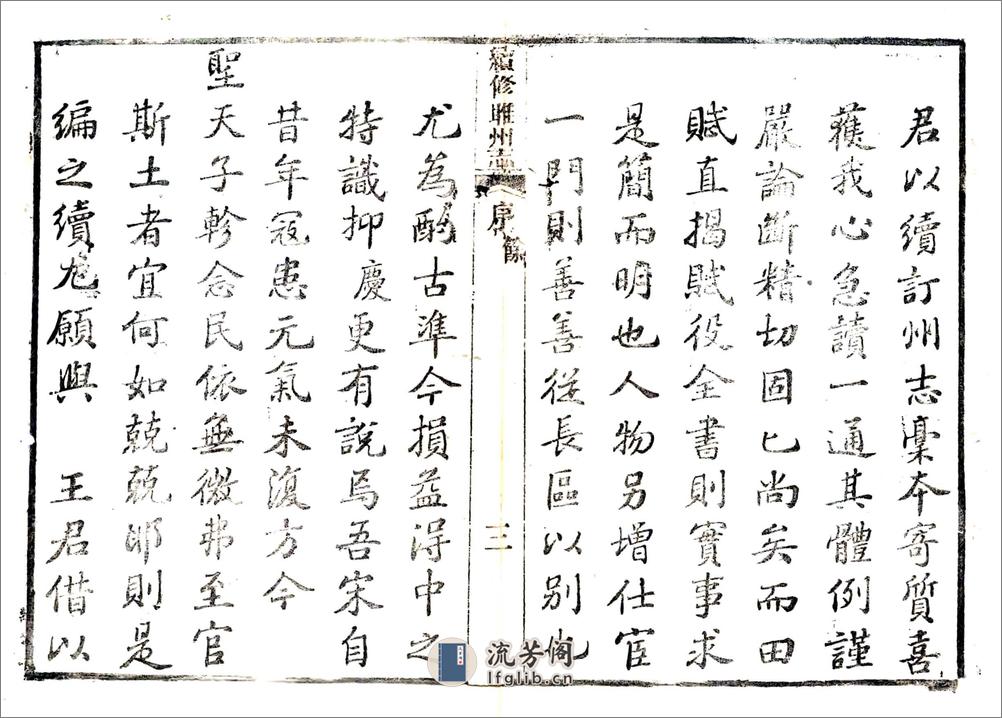 君以續訂州志稾本寄質喜
蕪我心急讀一通其體例謹
嚴論斷精切固已尚矣而田
賦直揭賦役全書則實事求
是簡而明也人物另增仕宦
一門則善善從長區以別也
續修睢州志
序餘
三
尤為酌古準今損益得中之
特識抑慶更有說焉吾宋自
昔年寇患元氣未復方今
聖天子軫念民依無微弗至官
斯土者宜何如兢兢耶則是
編之續尤願與 王君偕以
流芳阁
lfglib.cn